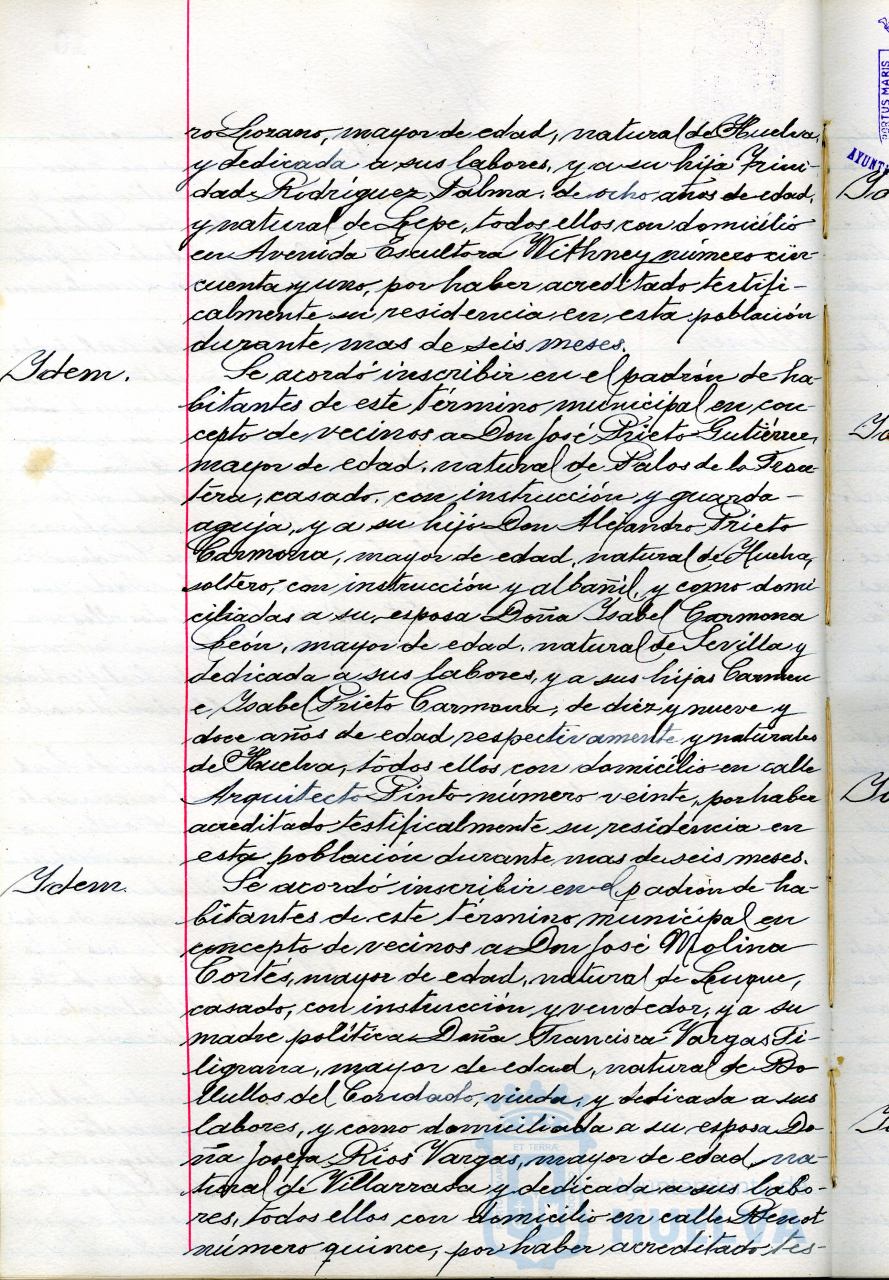 ro Lozano, mayor de edad, natural de Huelva,
y dedicada a sus labores, y a su hija Trini-
dad Rodríguez Palma, de ocho años de edad,
y natural de Lepe, todos ellos con domicilio
en Avenida Escultora Withney número cin-
cuenta y uno, por haber acreditado testifi-
calmente su residencia en esta población
durante mas de seis meses.
Idem.
Se acordó inscribir en el padrón de ha-
bitantes de este término municipal en con-
cepto de vecinos a Don José Prieto Gutiérrez,
mayor de edad, natural de Palos de la Fron-
tera, casado, con instrucción y guarda-
aguja, y a su hijo Don Alejandro Prieto
Carmona, mayor de edad, natural de Huelva,
soltero, con instrucción y albañil, y como domi
ciliadas a su esposa Doña Isabel Carmona
León, mayor de edad, natural de Sevilla y
dedicada a sus labores, y a sus hijas Carmen
e Isabel Prieto Carmona, de diez y nueve y
doce años de edad respectivamente y naturales
de Huelva, todos ellos con domicilio en calle
Arquitecto Pinto número veinte, por haber
acreditado testificalmente su residencia en
esta población durante mas de seis meses.
Idem.
Se acordó inscribir en el padrón de ha-
bitantes de este término municipal en
concepto de vecinos a Don José Molina
Cortés, mayor de edad, natural de Luque,
casado, con instrucción y vendedor, y a su
madre política Doña Francisca Vargas Fi-
ligrana, mayor de edad, natural de Bo
llullos del Condado, viuda, y dedicada a sus
labores, y como domiciliada a su esposa Do
ña Josefa Rios Vargas, mayor de edad, na-
tural de Villarrasa y dedicada a sus labo-
res, todos ellos con domicilio en calle Benot
número quince, por haber acreditado tes-
ET TERRA
Ayuntamiento de
HUELVA
PORTUS MARIS
AYUNT